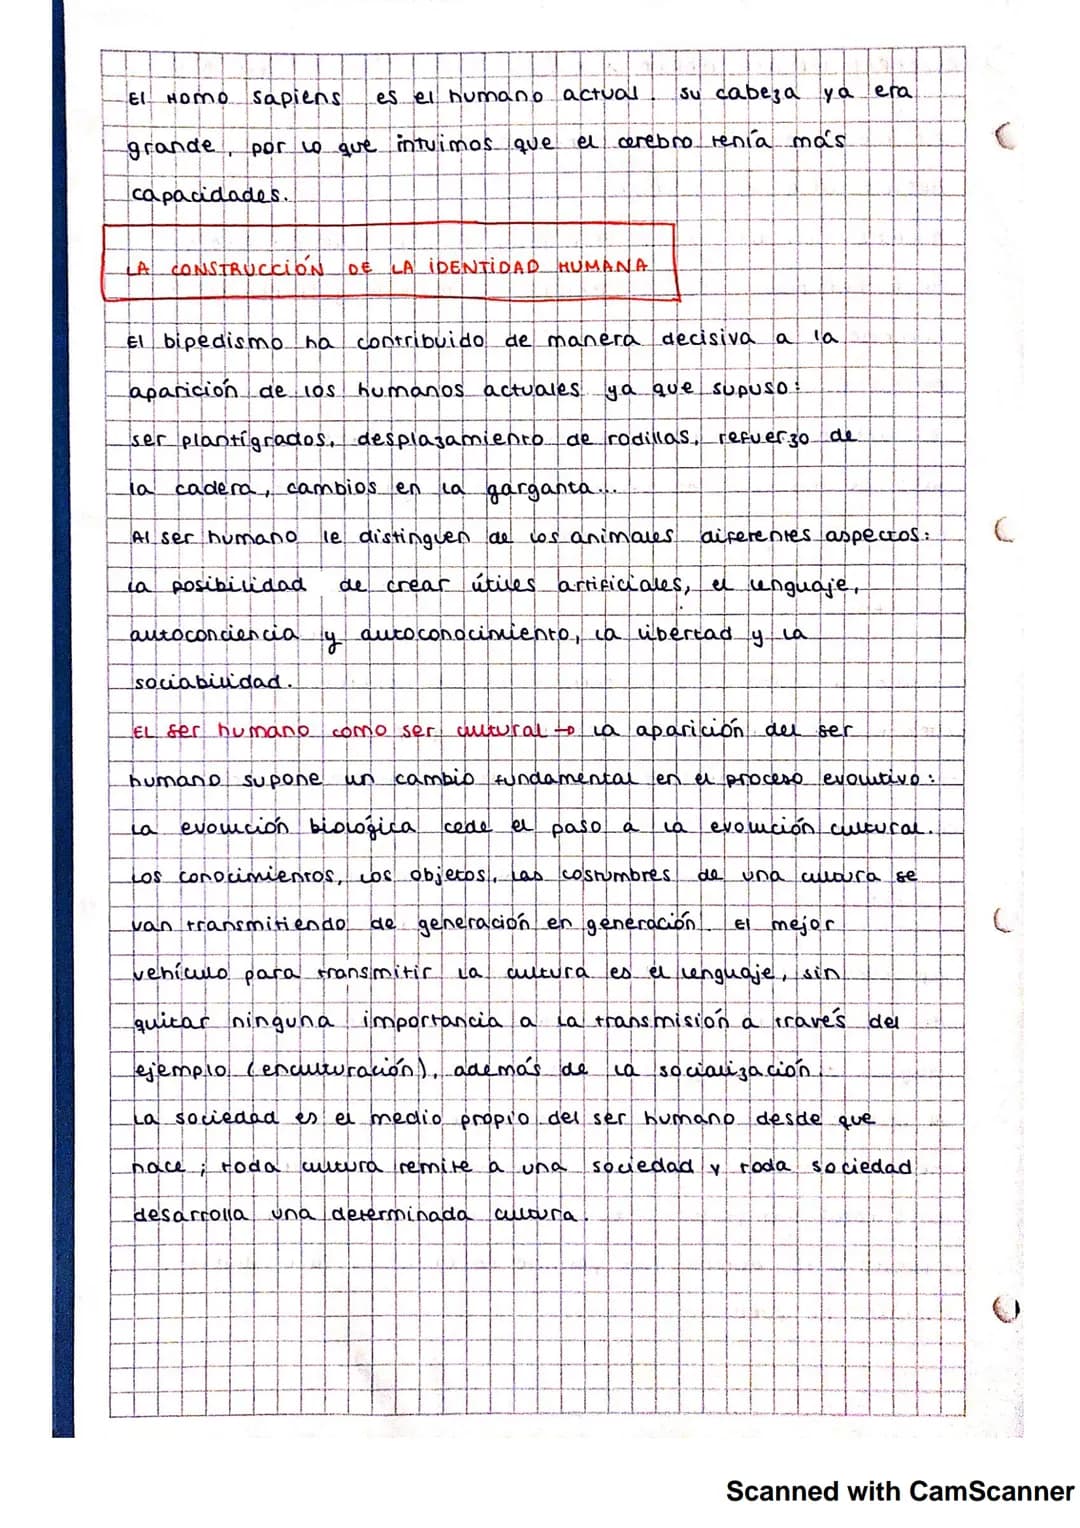 El Homo Sapiens es el humano actual. Su cabeza ya era
grande, por lo que intuimos que el cerebro tenía más
capacidades.
LA CONSTRUCCIÓN DE LA IDENTIDAD HUMANA
El bipedismo ha contribuido de manera decisiva a la
aparición de los humanos actuales ya que supuso:
ser plantígrados, desplazamiento de rodillas, refuerzo de
la cadera, cambios en la garganta...
Al ser humano le distinguen de los animales diferentes aspectos:
la posibilidad de crear útiles artificiales, el lenguaje,
autoconciencia y autoconocimiento, la libertad y la
sociabilidad.
EL ser humano como ser cultural → la aparición del ser
humano supone un cambio fundamental en el proceso evolutivo:
La evolución biológica cede el paso a la evolución cultural.
Los conocimientos, los objetos, las costumbres de una cultura se
van transmitiendo de generación en generación. El mejor
vehículo para transmitir la cultura es el lenguaje, sin
quitar ninguna importancia a la transmisión a través del
ejemplo (enculturación), además de la socialización.
La sociedad es el medio propio del ser humano desde que
nace; toda cultura remite a una sociedad y toda sociedad
desarrolla una determinada cultura.
Scanned with CamScanner